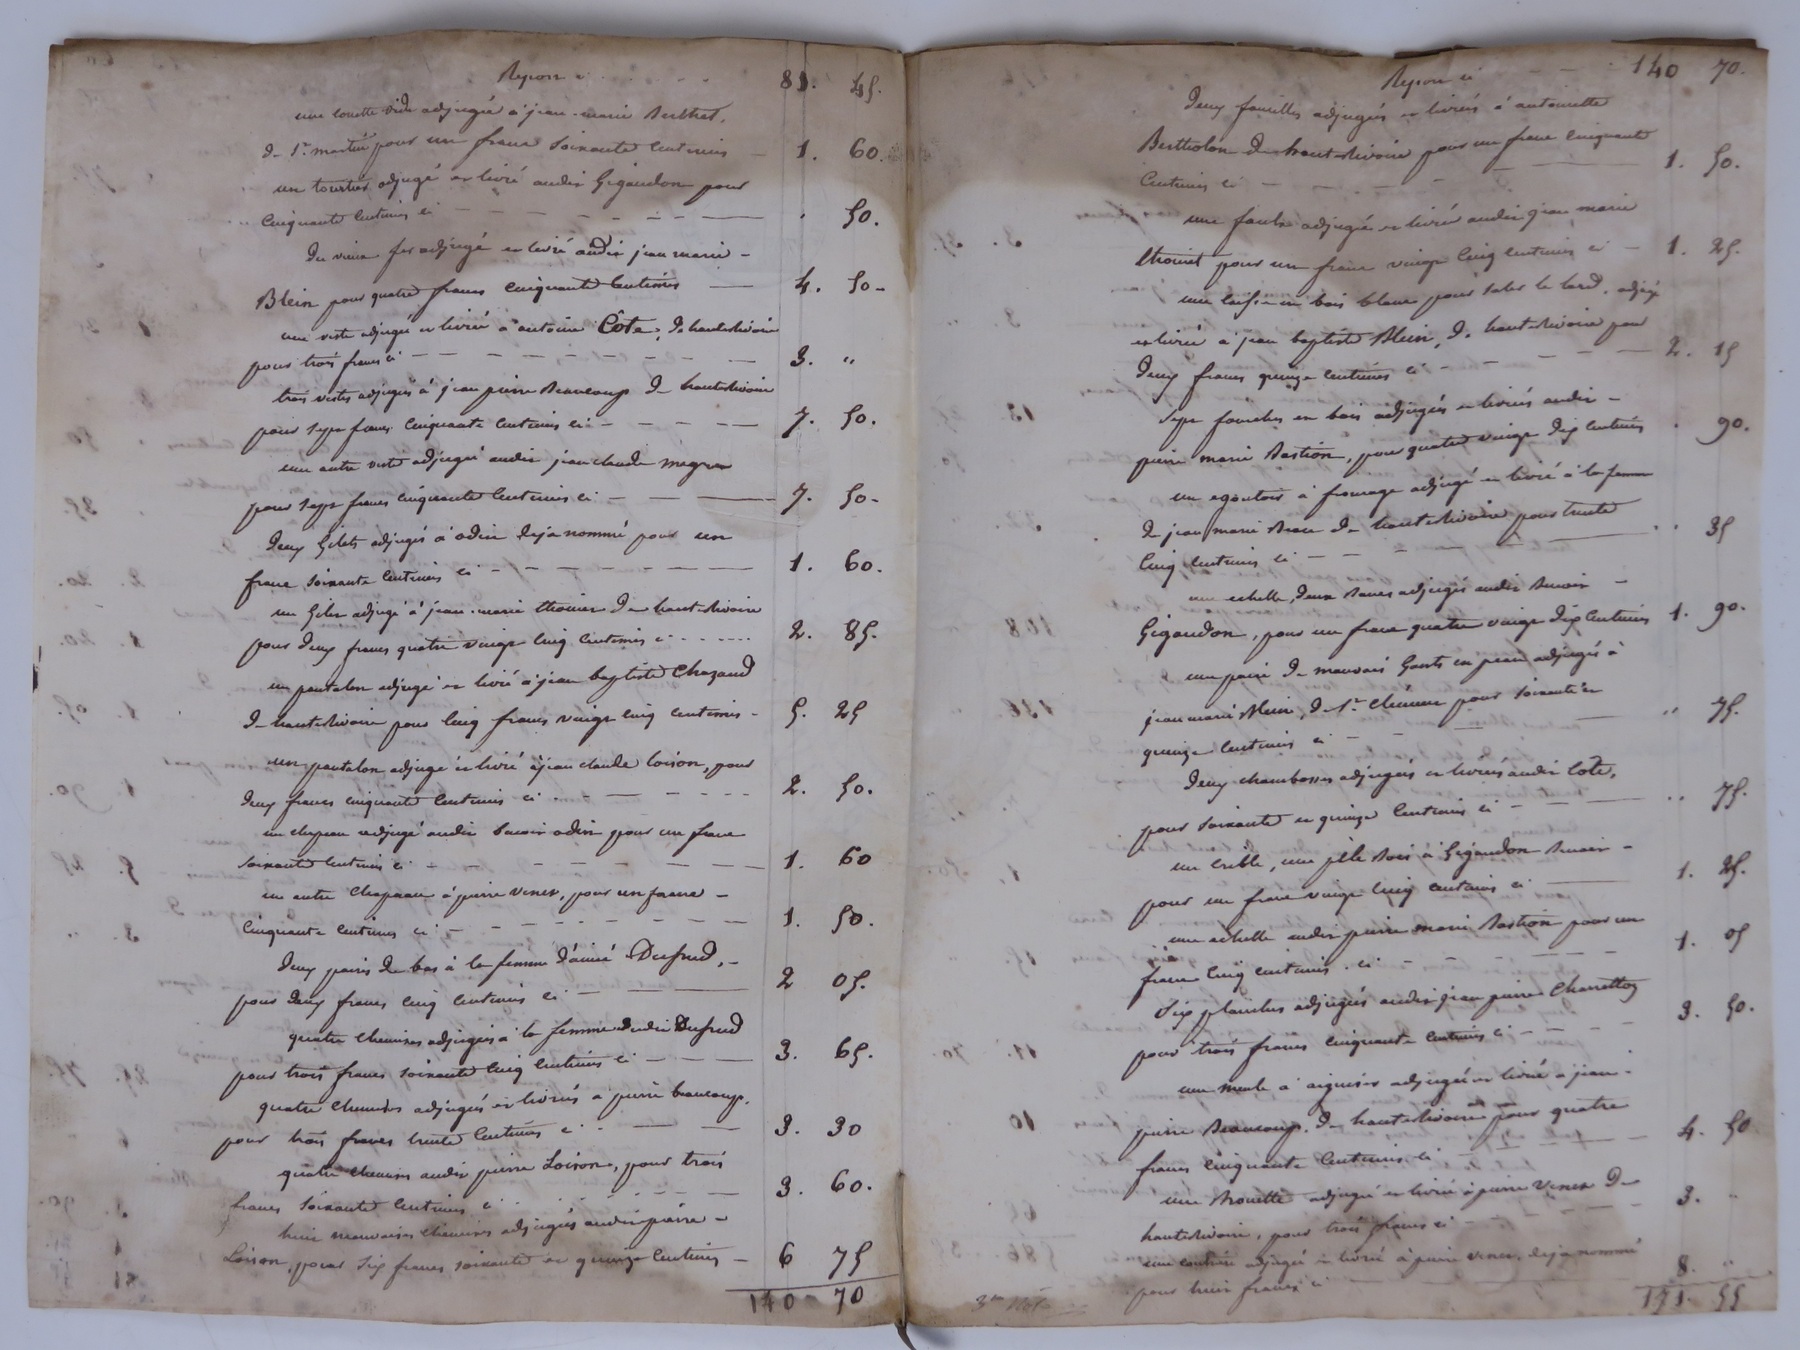 Report ci 81. 45.
une couette vide adjugée à jean-marie Berthet,
de St. martin pour un franc soixante centimes 1. 60.
un tourtier adjugé et livré audit Gigandon pour
cinquante centimes ci 50.
du vieux fer adjugé et livré audit jean marie
Blein pour quatre francs cinquante centimes 4. 50
une veste adjugée et livrée à antoine Côte, de hauterivoire
pour trois francs ci 3. "
trois vestes adjugés à jean pierre Beaucoup de hauterivoire
pour sept francs cinquante centimes ci 7. 50.
une autre veste adjugée audit jean claude
pour sept francs cinquante centimes ci 7. 50
deux Gilets adjugés à odin deja nommé pour un
franc soixante centimes ci 1. 60.
un Gilet adjugé à jean-marie thoinet de hauterivoire
pour deux francs quatre vingt cinq centimes ci 2. 85.
un pantalon adjugé et livré à jean baptiste Chazaud
de hauterivoire pour cinq francs vingt cinq centimes 5. 25
un pantalon adjugé et livré à jean claude Loison, pour
deux francs cinquante centimes ci 2. 50.
un chapeau adjugé audit odin pour un franc
soixante centimes ci 1. 60
un autre chapeau à pierre venet, pour un franc
cinquante centimes ci 1. 50.
deux paires de bas à la femme d'aimé Dufrud,
pour deux francs cinq centimes ci 2 05.
quatre chemises adjugées à la femme dudit Dufrud
pour trois francs soixante cinq centimes ci 3. 65.
quatre chemises adjugés et livrés à pierre beaucoup,
pour trois francs trente centimes ci 3. 30
quatre chemises audit pierre Loison, pour trois
francs soixante centimes ci 3. 60.
huit mauvaises chemises adjugés audit pierre
Loison, pour six francs soixante et quinze centimes 6 75
140 70
Report ci 140 70.
deux faucilles adjugés et livrés à antoinette
Bertholon de hauterivoire pour un franc cinquante
centimes ci 1. 50.
une faulx adjugée et livrée audit jean marie
thoinet pour un franc vingt cinq centimes ci 1. 25.
une caisse en bois blanc pour saler le lard, adjugé
et livrée à jean baptiste Blein, de hauterivoire pour
deux francs quinze centimes ci 2. 15
sept fourches en bois adjugés et livrés audit
pierre marie Bastion, pour quatre vingt dix centimes 90.
un egoutoir à fromage adjugé et livré à la femme
de jean marie de hauterivoire pour trente
cinq centimes ci 35
une echelle, deux adjugés audit
Gigandon, pour un franc quatre vingt dix centimes 1. 90.
une paire de mauvais Gants en peau adjugés à
jean marie Blein, de St. clément pour soixante et
quinze centimes ci " 75.
deux adjugés et livrés audit Cote,
pour soixante et quinze centimes ci 75.
un crible, une à Gigandon
pour un franc vingt cinq centimes ci 1. 25.
une echelle audit pierre marie Bastion pour un
franc cinq centimes ci 1. 05
six planches adjugés audit jean pierre
pour trois francs cinquante centimes ci 3. 50.
une meule à aiguiser adjugée et livrée à jean
pierre Beaucoup, de hauterivoire pour quatre
francs cinquante centimes ci 4. 50
une Brouette adjugée et livrée à pierre venet de
hauterivoire, pour trois francs ci 3. "
une adjugé et livré à pierre venet, deja nommé
pour huit francs ci 8. "
171. 55